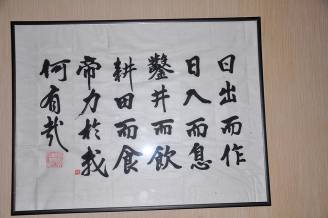 日出而作
日入而息
鑿井而飲
耕田而食
帝力於我
何有哉